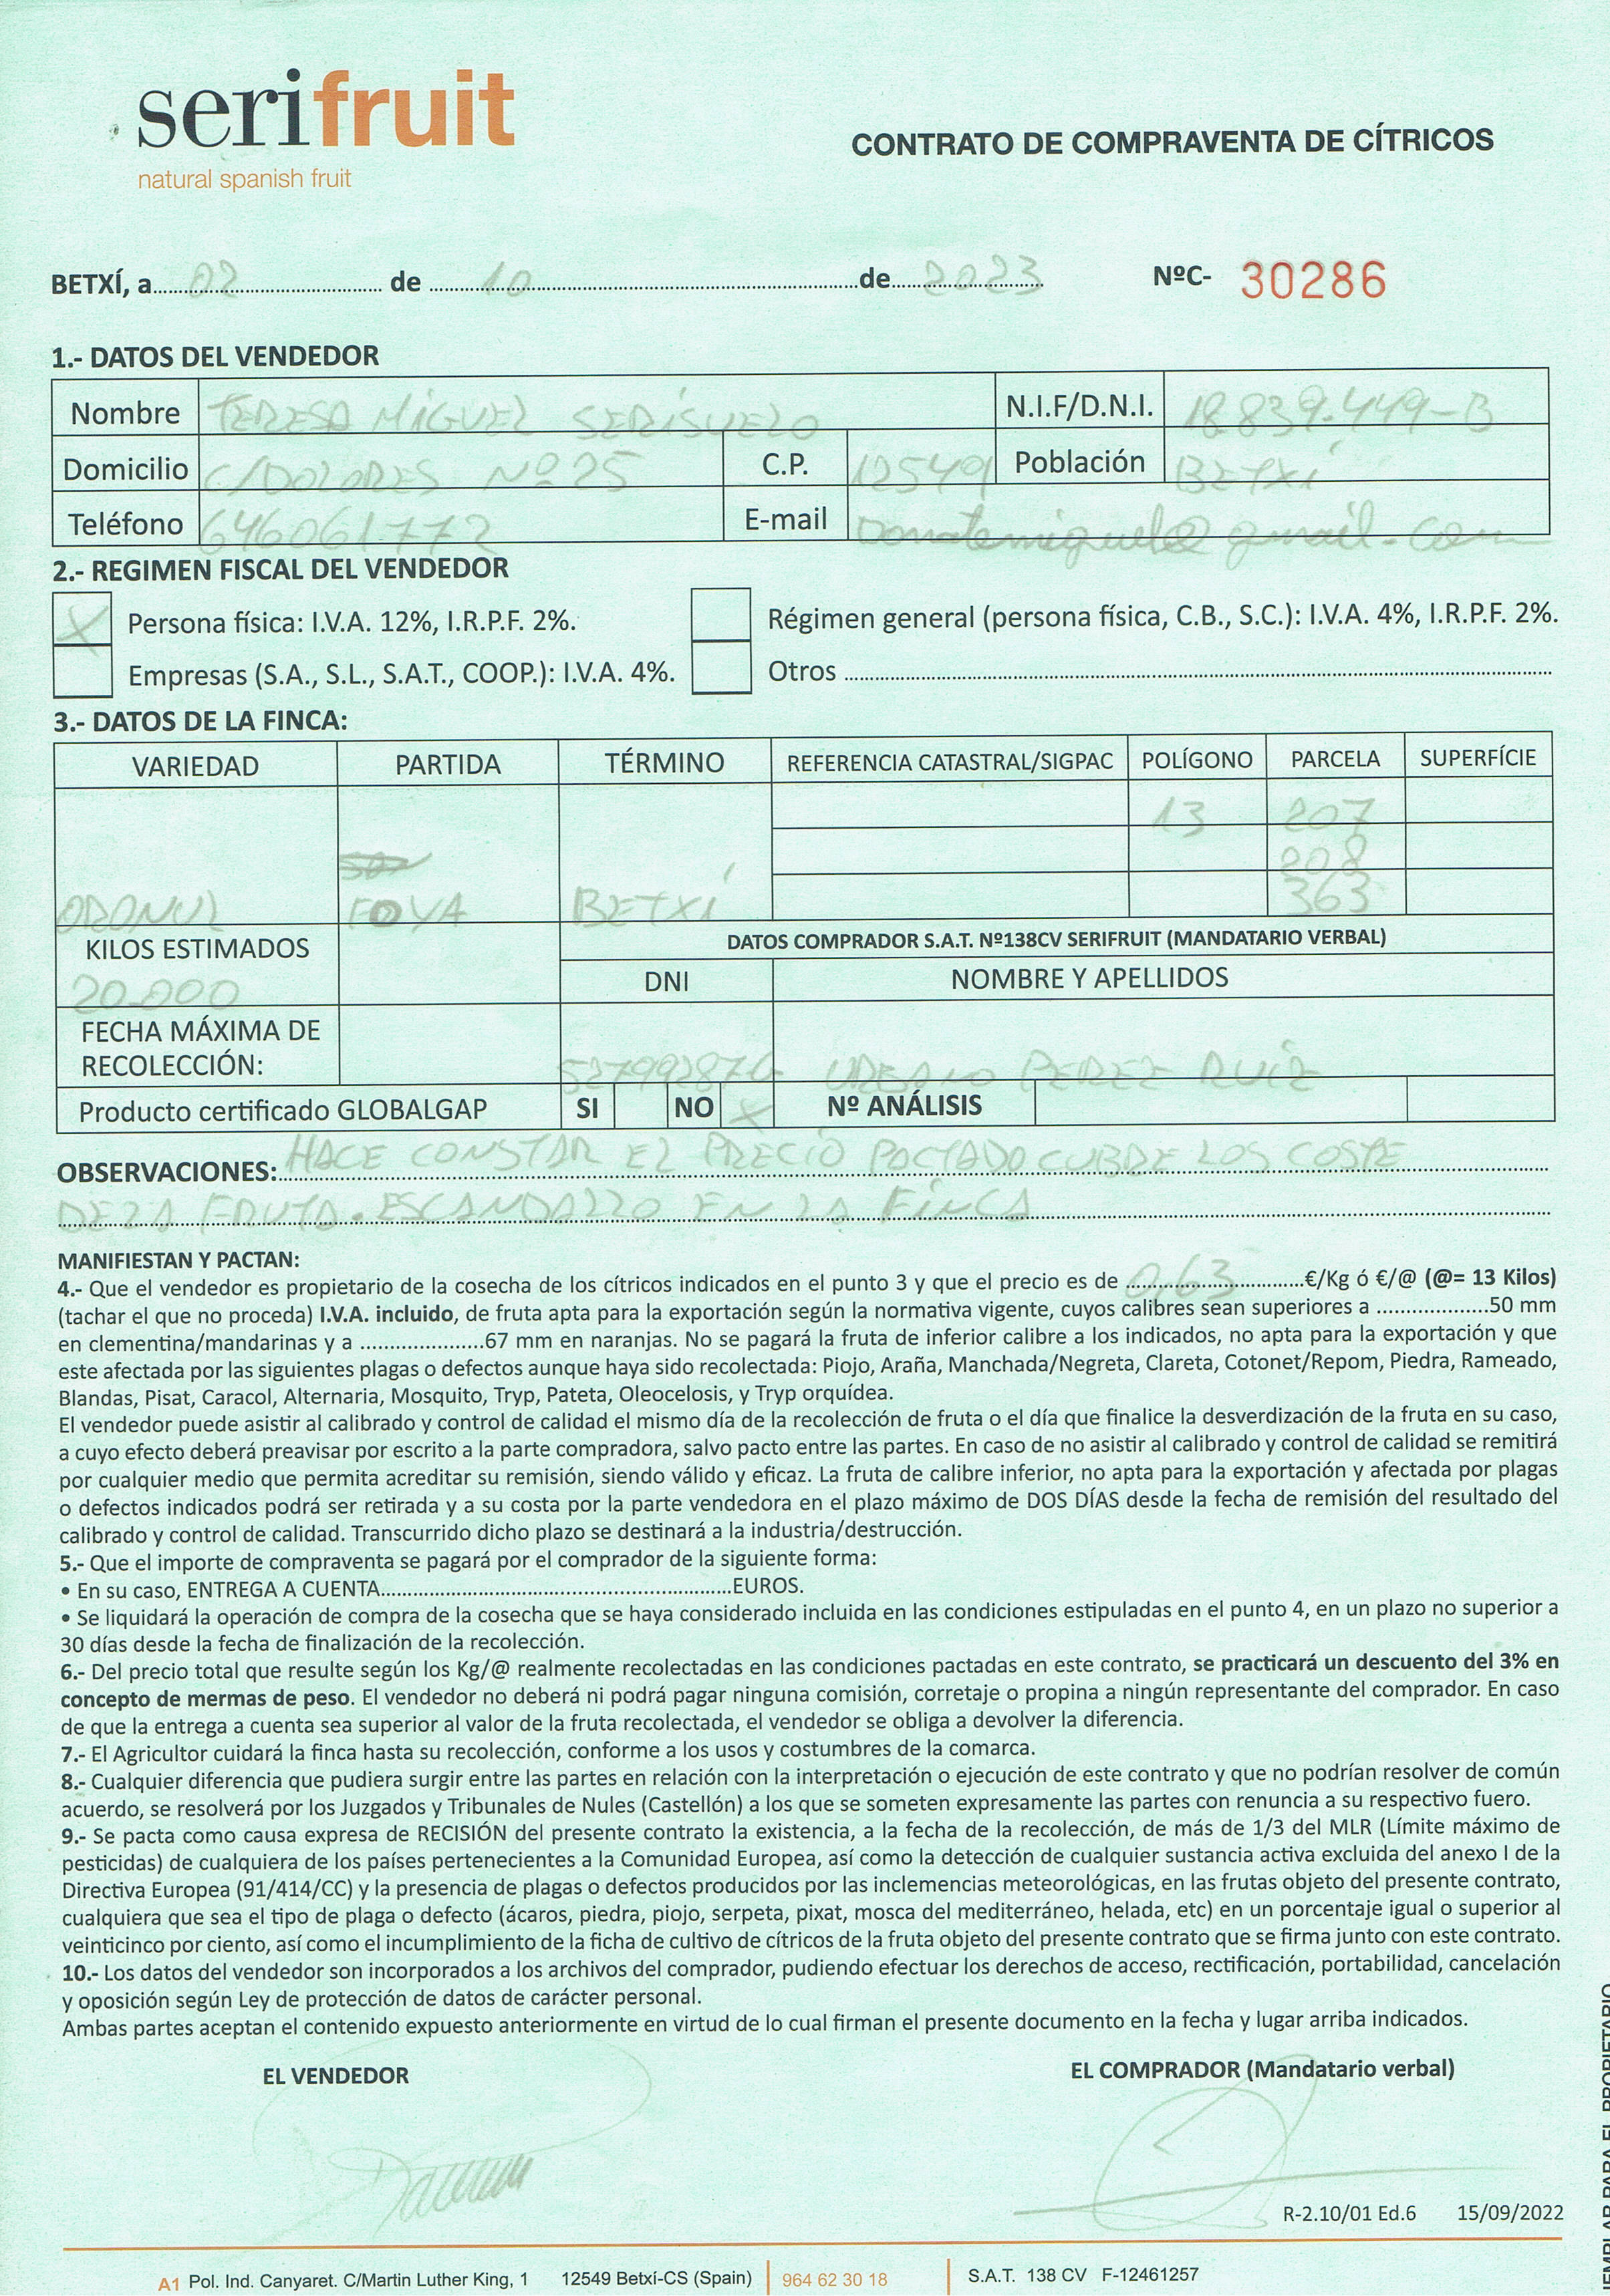 serifruit
natural spanish fruit
CONTRATO DE COMPRAVENTA DE CÍTRICOS
BETXÍ, a 02 de 10 de 2023 NºC- 30286
1.- DATOS DEL VENDEDOR
Nombre TERESA MIGUEL SERISUELO N.I.F/D.N.I. 18839.449-B
Domicilio C/DOLORES Nº25 C.P. 12549 Población BETXÍ
Teléfono 646061772 E-mail Donatemiguel@gmail.com
2.- REGIMEN FISCAL DEL VENDEDOR
X Persona física: I.V.A. 12%, I.R.P.F. 2%. Régimen general (persona física, C.B., S.C.): I.V.A. 4%, I.R.P.F. 2%.
Empresas (S.A., S.L., S.A.T., COOP.): I.V.A. 4%. Otros
3.- DATOS DE LA FINCA:
VARIEDAD PARTIDA TÉRMINO REFERENCIA CATASTRAL/SIGPAC POLÍGONO PARCELA SUPERFÍCIE
13 207
208
ORONUL FOYA BETXÍ 363
KILOS ESTIMADOS DATOS COMPRADOR S.A.T. Nº138CV SERIFRUIT (MANDATARIO VERBAL)
20.000 DNI NOMBRE Y APELLIDOS
FECHA MÁXIMA DE
RECOLECCIÓN: 52799287G URBANO PEREZ RUIZ
Producto certificado GLOBALGAP SI NO X Nº ANÁLISIS
OBSERVACIONES: HACE CONSTAR EL PRECIO PACTADO CUBRE LOS COSTE
DE LA FRUTA. ESCANDALLO EN LA FINCA
MANIFIESTAN Y PACTAN:
4.- Que el vendedor es propietario de la cosecha de los cítricos indicados en el punto 3 y que el precio es de 0,63 €/Kg ó €/@ (@= 13 Kilos)
(tachar el que no proceda) I.V.A. incluido, de fruta apta para la exportación según la normativa vigente, cuyos calibres sean superiores a ....................50 mm
en clementina/mandarinas y a ......................67 mm en naranjas. No se pagará la fruta de inferior calibre a los indicados, no apta para la exportación y que
este afectada por las siguientes plagas o defectos aunque haya sido recolectada: Piojo, Araña, Manchada/Negreta, Clareta, Cotonet/Repom, Piedra, Rameado,
Blandas, Pisat, Caracol, Alternaria, Mosquito, Tryp, Pateta, Oleocelosis, y Tryp orquídea.
El vendedor puede asistir al calibrado y control de calidad el mismo día de la recolección de fruta o el día que finalice la desverdización de la fruta en su caso,
a cuyo efecto deberá preavisar por escrito a la parte compradora, salvo pacto entre las partes. En caso de no asistir al calibrado y control de calidad se remitirá
por cualquier medio que permita acreditar su remisión, siendo válido y eficaz. La fruta de calibre inferior, no apta para la exportación y afectada por plagas
o defectos indicados podrá ser retirada y a su costa por la parte vendedora en el plazo máximo de DOS DÍAS desde la fecha de remisión del resultado del
calibrado y control de calidad. Transcurrido dicho plazo se destinará a la industria/destrucción.
5.- Que el importe de compraventa se pagará por el comprador de la siguiente forma:
• En su caso, ENTREGA A CUENTA..................................................................EUROS.
• Se liquidará la operación de compra de la cosecha que se haya considerado incluida en las condiciones estipuladas en el punto 4, en un plazo no superior a
30 días desde la fecha de finalización de la recolección.
6.- Del precio total que resulte según los Kg/@ realmente recolectadas en las condiciones pactadas en este contrato, se practicará un descuento del 3% en
concepto de mermas de peso. El vendedor no deberá ni podrá pagar ninguna comisión, corretaje o propina a ningún representante del comprador. En caso
de que la entrega a cuenta sea superior al valor de la fruta recolectada, el vendedor se obliga a devolver la diferencia.
7.- El Agricultor cuidará la finca hasta su recolección, conforme a los usos y costumbres de la comarca.
8.- Cualquier diferencia que pudiera surgir entre las partes en relación con la interpretación o ejecución de este contrato y que no podrían resolver de común
acuerdo, se resolverá por los Juzgados y Tribunales de Nules (Castellón) a los que se someten expresamente las partes con renuncia a su respectivo fuero.
9.- Se pacta como causa expresa de RECISIÓN del presente contrato la existencia, a la fecha de la recolección, de más de 1/3 del MLR (Límite máximo de
pesticidas) de cualquiera de los países pertenecientes a la Comunidad Europea, así como la detección de cualquier sustancia activa excluida del anexo I de la
Directiva Europea (91/414/CC) y la presencia de plagas o defectos producidos por las inclemencias meteorológicas, en las frutas objeto del presente contrato,
cualquiera que sea el tipo de plaga o defecto (ácaros, piedra, piojo, serpeta, pixat, mosca del mediterráneo, helada, etc) en un porcentaje igual o superior al
veinticinco por ciento, así como el incumplimiento de la ficha de cultivo de cítricos de la fruta objeto del presente contrato que se firma junto con este contrato.
10.- Los datos del vendedor son incorporados a los archivos del comprador, pudiendo efectuar los derechos de acceso, rectificación, portabilidad, cancelación
y oposición según Ley de protección de datos de carácter personal.
Ambas partes aceptan el contenido expuesto anteriormente en virtud de lo cual firman el presente documento en la fecha y lugar arriba indicados.
EL VENDEDOR EL COMPRADOR (Mandatario verbal)
R-2.10/01 Ed.6 15/09/2022
A1 Pol. Ind. Canyaret. C/Martin Luther King, 1 12549 Betxí-CS (Spain) 964 62 30 18 S.A.T. 138 CV F-12461257
PARA EL PROPIETARIO